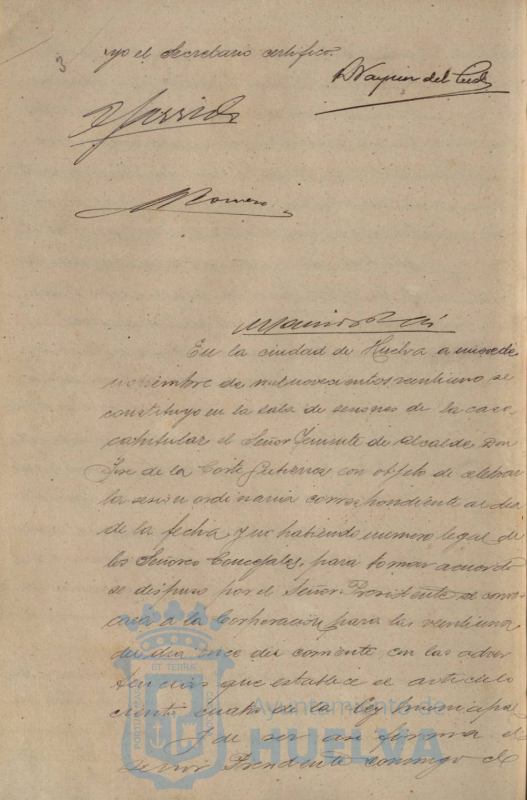 3
yo el Secretario certifico.
En la ciudad de Huelva a nueve de
noviembre de mil novecientos veintiuno se
constituyo en la sala de sesiones de la casa
capitular el Señor Teniente de Alcalde Don
José de la Corte Gutierrez con objeto de celebrar
la sesion ordinaria correspondiente al dia
de la fecha y no habiendo numero legal de
los Señores Concejales, para tomar acuerdo
se dispuso por el Señor Presidente se convo
cara a la Corporación para las veintiuna
del dia once del corriente, con las adver
tencias que establece el articulo
ciento cuatro de la Ley Municipal
Y de ser asi firma el
Señor Presidente conmigo el
ET TERRÆ
Ayuntamiento de
HUELVA